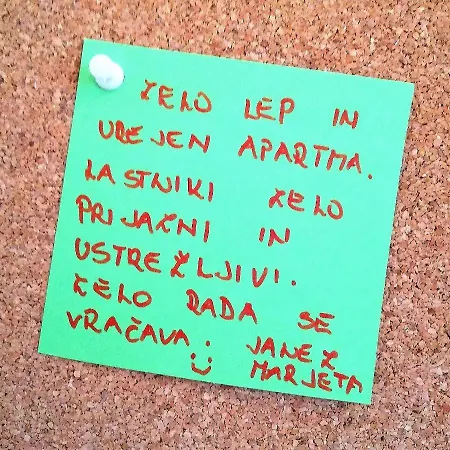 ZELO LEP IN
UREJEN APARTMA.
LASTNIKI ZELO
PRIJAZNI IN
USTREŽLJIVI.
ZELO RADA SE
VRAČAVA. JANEZ
MARJETA